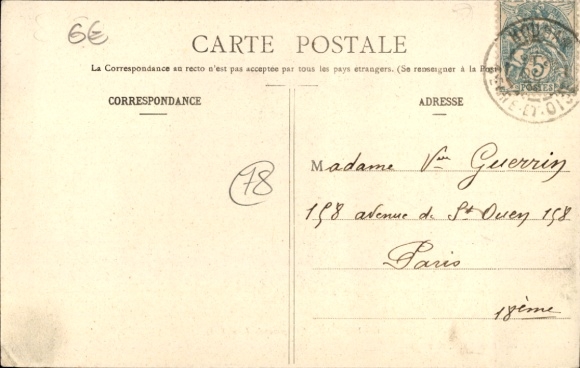 6€
CARTE POSTALE
La Correspondance au recto n'est pas acceptée par tous les pays étrangers. (Se renseigner à la Poste
CORRESPONDANCE
ADRESSE
5
POSTES
78
Madame Vve Guerrin
158 avenue de St Ouen 158
Paris
18ème